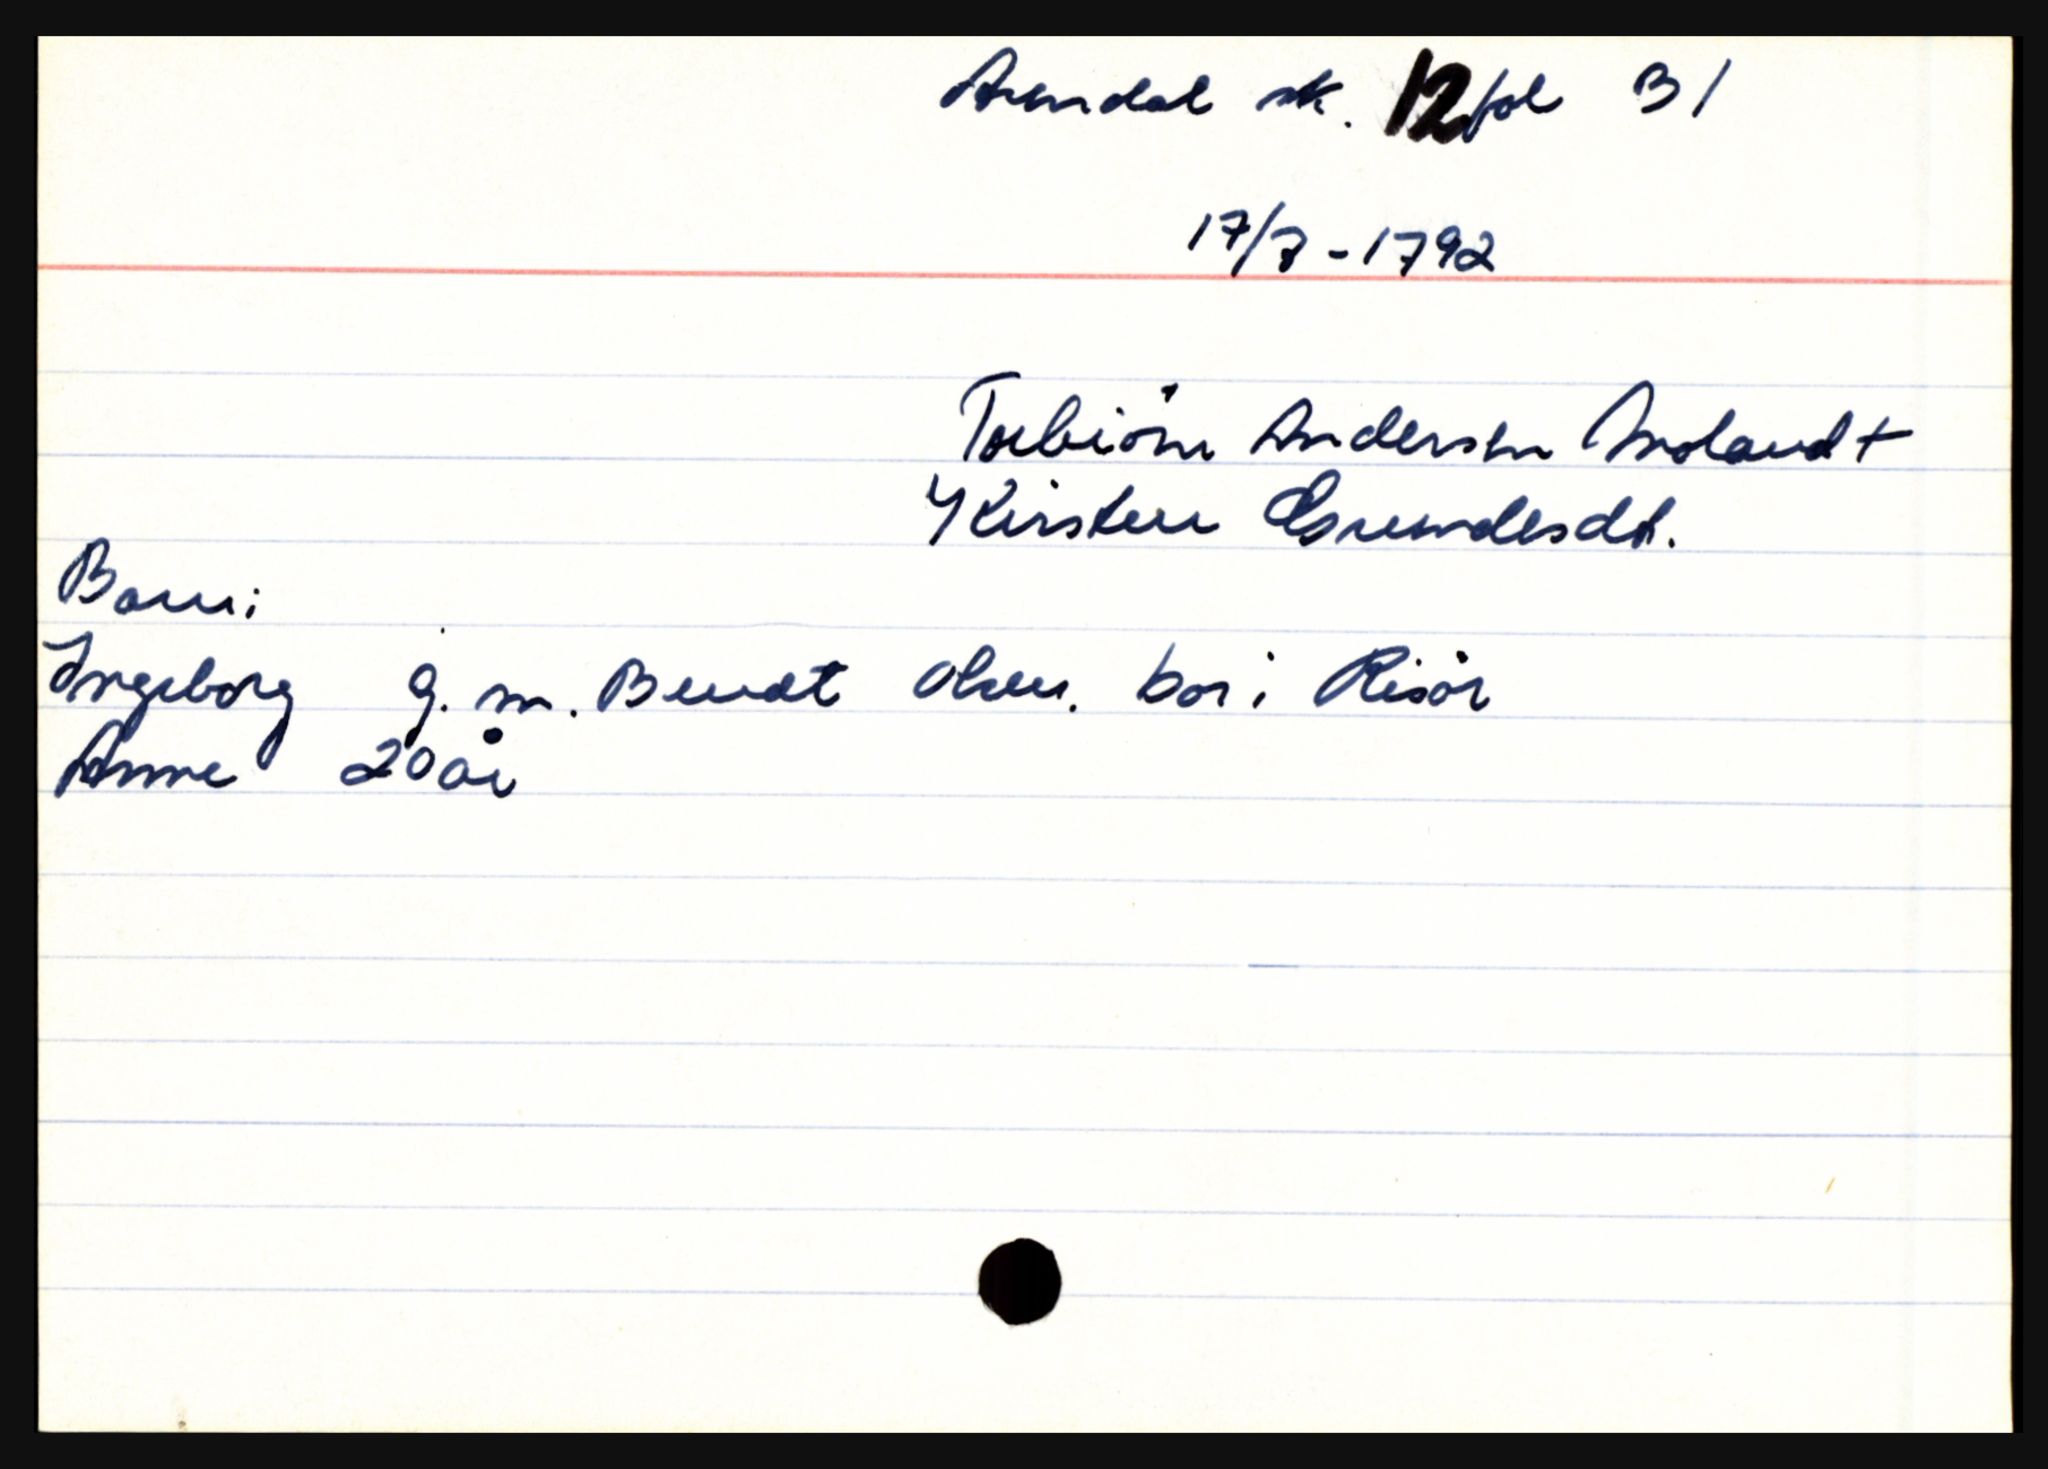 Arendal sk. 12 fol 31
17/7-1792
Torbiörn Andersen Molandt
4 Kirsten Gundesdt.
Barn:
Ingeborg g. m. Bendt Olsen. bor i Risör
Anne 20 år